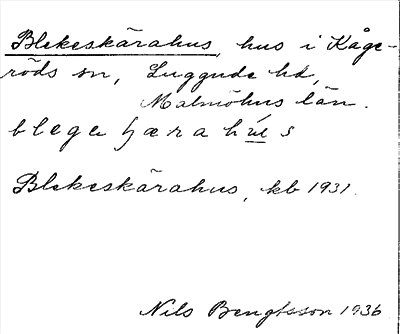 Blekeskärahus, hus i Kåge-
röds sn, Luggude hd,
Malmöhus län.
Blekeskärahus, kb 1931.
Nils Bengtsson 1936